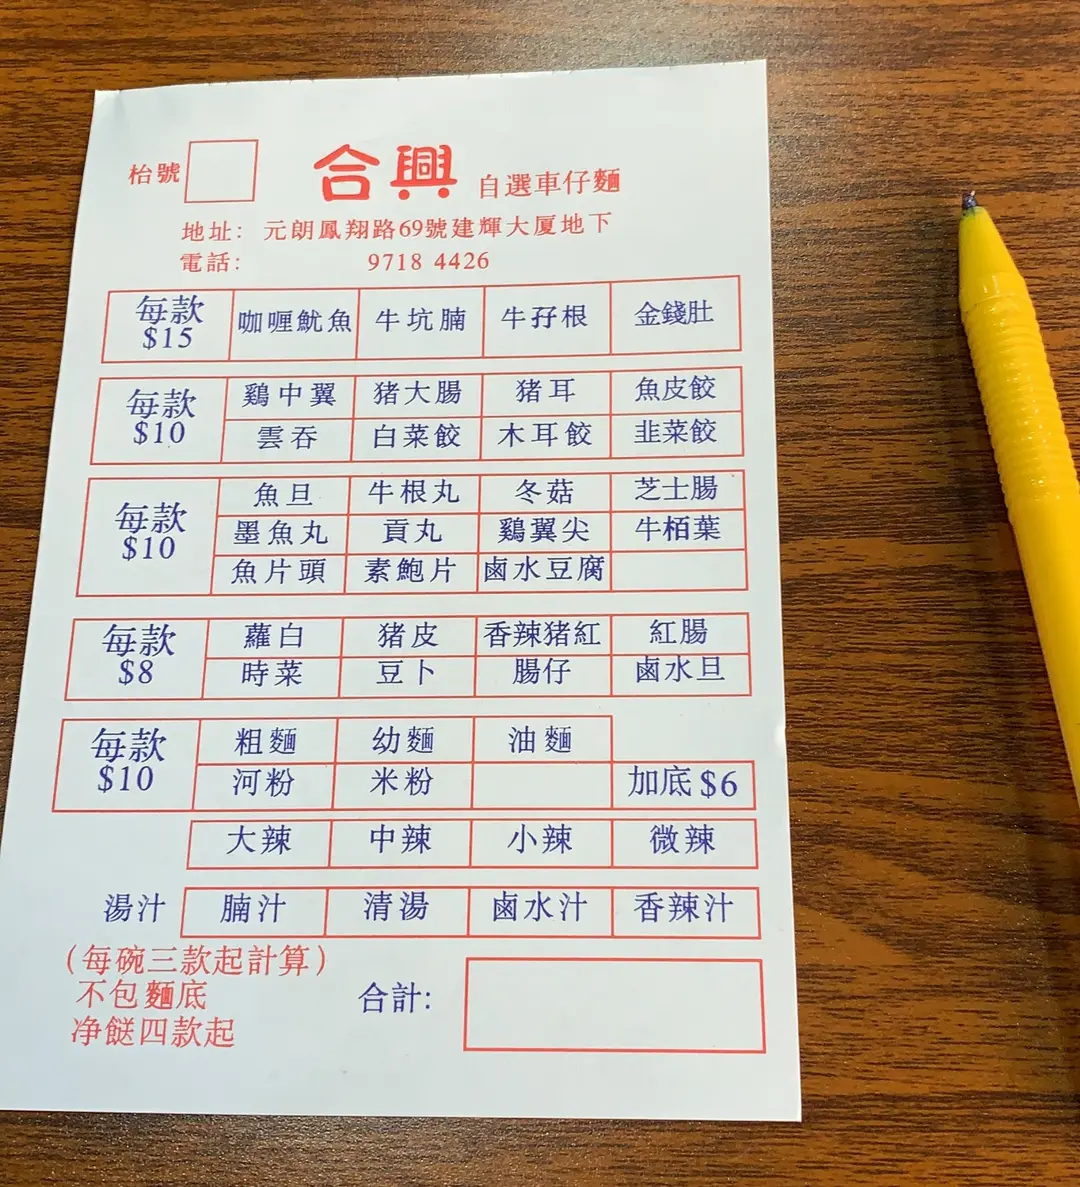 枱號
合興 自選車仔麵
地址: 元朗鳳翔路69號建輝大厦地下
電話: 9718 4426
每款 $15 咖喱魷魚 牛坑腩 牛孖根 金錢肚
每款 $10 鷄中翼 猪大腸 猪耳 魚皮餃
雲吞 白菜餃 木耳餃 韭菜餃
每款 $10 魚旦 牛根丸 冬菇 芝士腸
墨魚丸 貢丸 鷄翼尖 牛栢葉
魚片頭 素鮑片 鹵水豆腐
每款 $8 蘿白 猪皮 香辣猪紅 紅腸
時菜 豆卜 腸仔 鹵水旦
每款 $10 粗麵 幼麵 油麵
河粉 米粉 加底 $6
大辣 中辣 小辣 微辣
湯汁 腩汁 清湯 鹵水汁 香辣汁
(每碗三款起計算)
不包麵底 合計:
净餸四款起